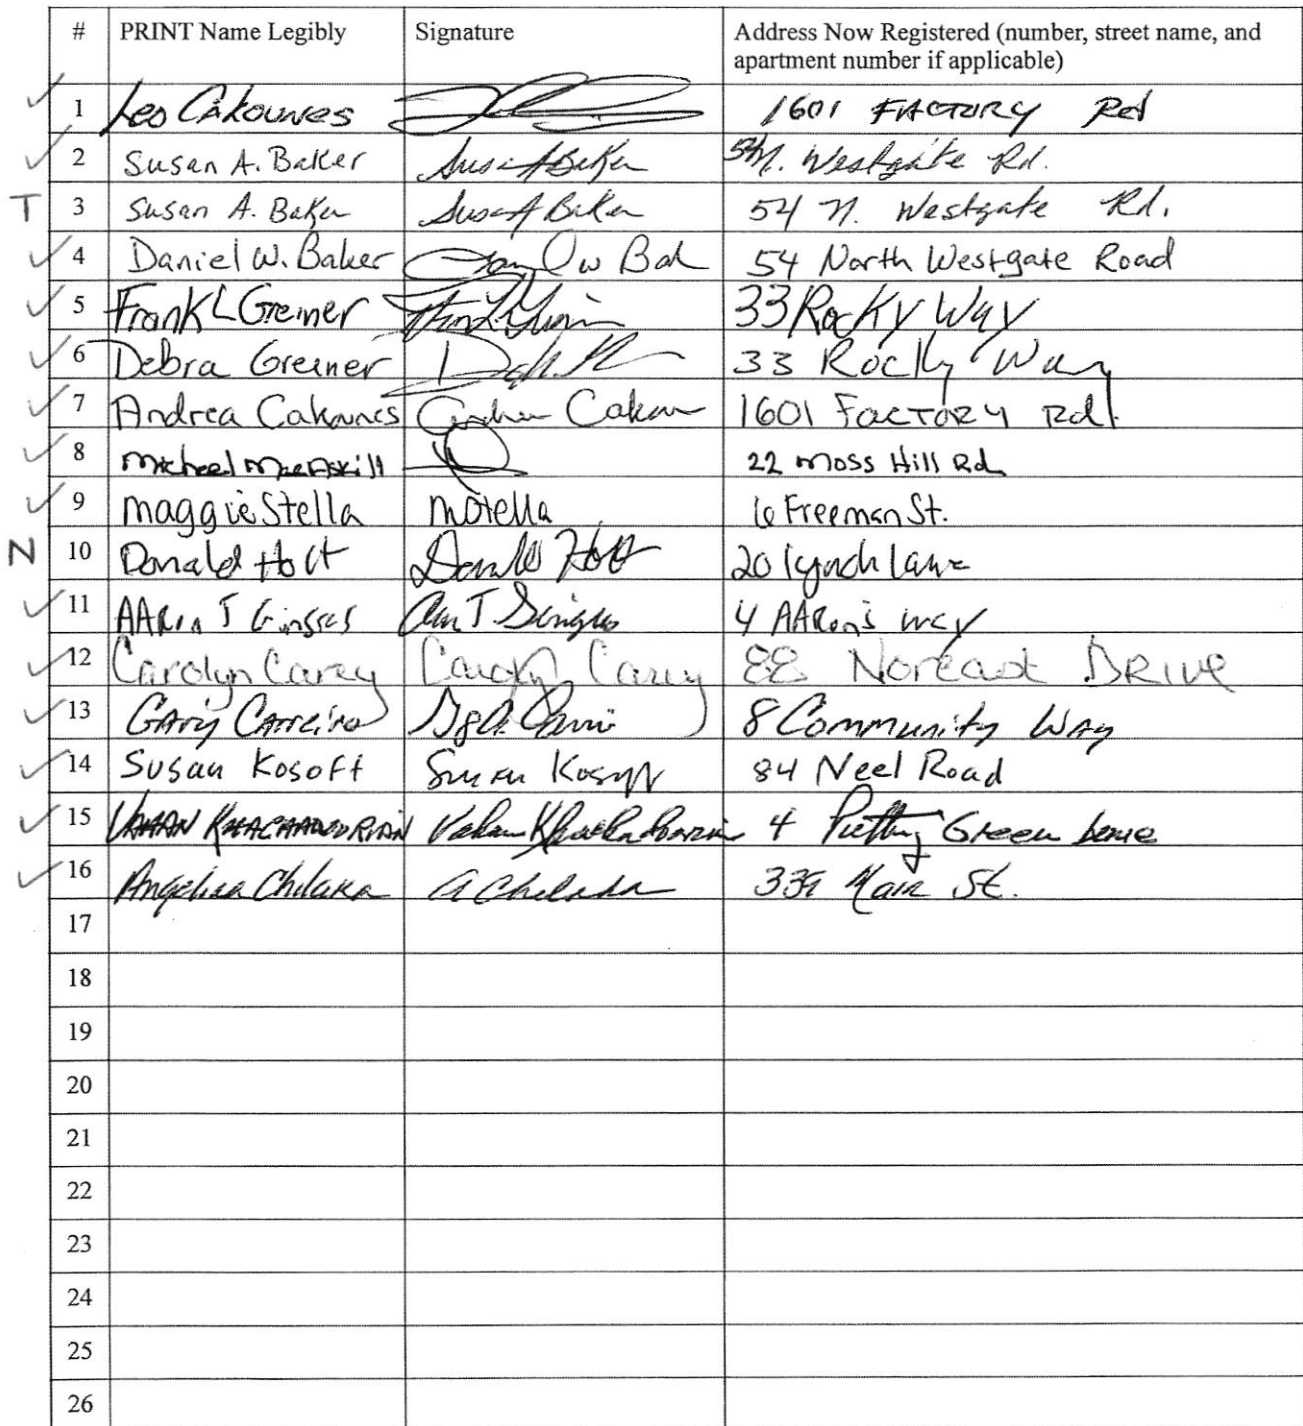 # PRINT Name Legibly Signature Address Now Registered (number, street name, and
apartment number if applicable)
✓ 1 Leo Cakounes 1601 FACTORY Rd
✓ 2 Susan A. Baker Susan A Baker 54 N. Westgate Rd.
T 3 Susan A. Baker Susan A Baker 54 N. Westgate Rd.
✓ 4 Daniel W. Baker 54 North Westgate Road
✓ 5 Frank L Greiner 33 Rocky Way
✓ 6 Debra Greiner 33 Rocky Way
✓ 7 Andrea Cakounes 1601 FACTORY Rd.
✓ 8 Michael MacAskill 22 Moss Hill Rd.
✓ 9 Maggie Stella MStella 6 Freeman St.
N 10 Donald Holt Donald Holt 20 lynch lane
✓ 11 AAron J Gingras 4 AARon's way
✓ 12 Carolyn Carey Carolyn Carey 88 Noreast DRIVE
✓ 13 GARY CARREIRO 8 Community WAy
✓ 14 Susan Kosoff Susan Kosoff 84 Neel Road
✓ 15 VAHAN KHACHADOORIAN Vahan Khachadoorian 4 Putting Green Lane
✓ 16 Main St.
17
18
19
20
21
22
23
24
25
26